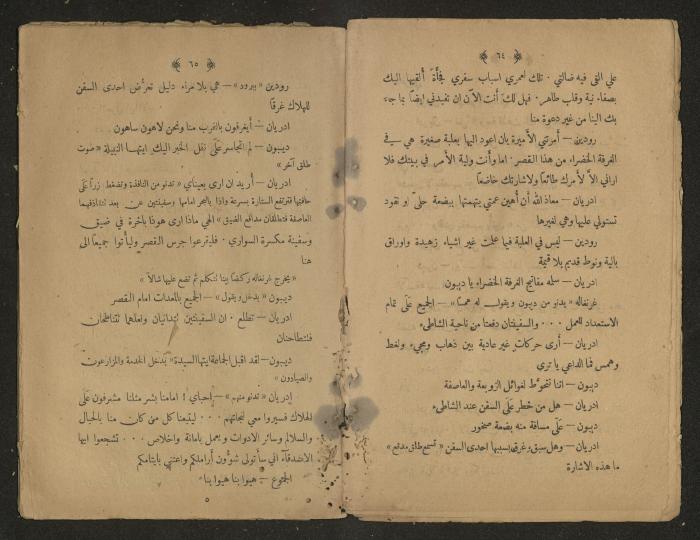 ﴿ ٦٤ ﴾
علي التقى فيه ضالتي . تلك لعمري اسباب سفري فجأةً القيها اليك
بصفاء نية وقلب طاهر . فهل لكَ أنت الآن ان تفيدني ايضاً بما جاء
بك الينا من غير دعوة منا
رودين — أمرتني الأميرة بان اعود اليها بعلبة صغيرة هي في
الغرفة الخضراء من هذا القصر . اما وأنت ولية الأمر في بيتك فلا
اراني الاَّ لأمرك طائعاً ولاشارتك خاضعاً
ادريان — معاذ الله أن أهين عمتي بتهمتها ببضعة حليّ او نقود
تستولي عليها وهي لغيرها
رودين — ليس في العلبة فيما علمت غير اشياء زهيدة واوراق
بالية ونوط قديم بلا قيمة
ادريان — سلمه مفاتيح الغرفة الخضراء يا ديبون
غرنفاله « يدنو من ديبون ويقول له همساً » — الجميع على تمام
الاستعداد للعمل ... والسفينتان دفعتا من ناحية الشاطىء
ادريان — أرى حركات غير عادية بين ذهاب ومجيء ولغط
وهمس فما الداعي يا ترى
ديبون — اننا نتحوَّط لغوائل الزوبعة والعاصفة
ادريان — هل من خطر على السفن عند الشاطىء
ديبون — على مسافة منه بضعة صخور
ادريان — وهل سبق وغرق بسببها احدى السفن « تسمع طلق مدفع »
ما هذه الاشارة
﴿ ٦٥ ﴾
رودين « ببرود » — هي بلا مراء دليل تعرُّض احدى السفن
للهلاك غرقًا
ادريان — أيغرقون بالقرب منا ونحن لاهون ساهون
ديبون — لم اتجاسر على نقل الخبر اليك ايتها النبيلة « صوت
طلق آخر »
ادريان — أريد ان ارى بعينايَ « تدنو من النافذة وتضغط زراً على
حافتها فترتفع الستارة بسرعة واذا بالبحر امامها وسفينتين عن بعد تتقاذفهما
العاصفة فتطلقان مدافع الضيق » الهي ماذا ارى هوذا باخرة في ضيق
وسفينة مكسرة السواري . فليقرعوا جرس القصر وليأتوا جميعاً الى
هنا
« يخرج غرنفاله ركضاً بينا تتكلم ثم تضع عليها شالاً »
ديبون « يدخل ويقول » — الجميع بالمعدات امام القصر
ادريان — تطلع . ان السفينتين تتدانيان ولعلهما تتناطحان
فتتطاحنان
ديبون — لقد اقبل الجماعة ايتها السيدة « يدخل الخدمة والمزارعون
والصيادون »
ادريان « تدنو منهم » — احبائي ! امامنا بشر مثلنا مشرفون على
الهلاك فسيروا معي لنجاتهم ... ليتبعنا كل من كان منا بالحبال
والسلالم وسائر الادوات وليعمل بامانة واخلاص ... تشجعوا ايها
الاصدقاء اني سأتولى شؤون أراملكم واعتني بايتامكم
الجموع — هيوا بنا هيوا بنا